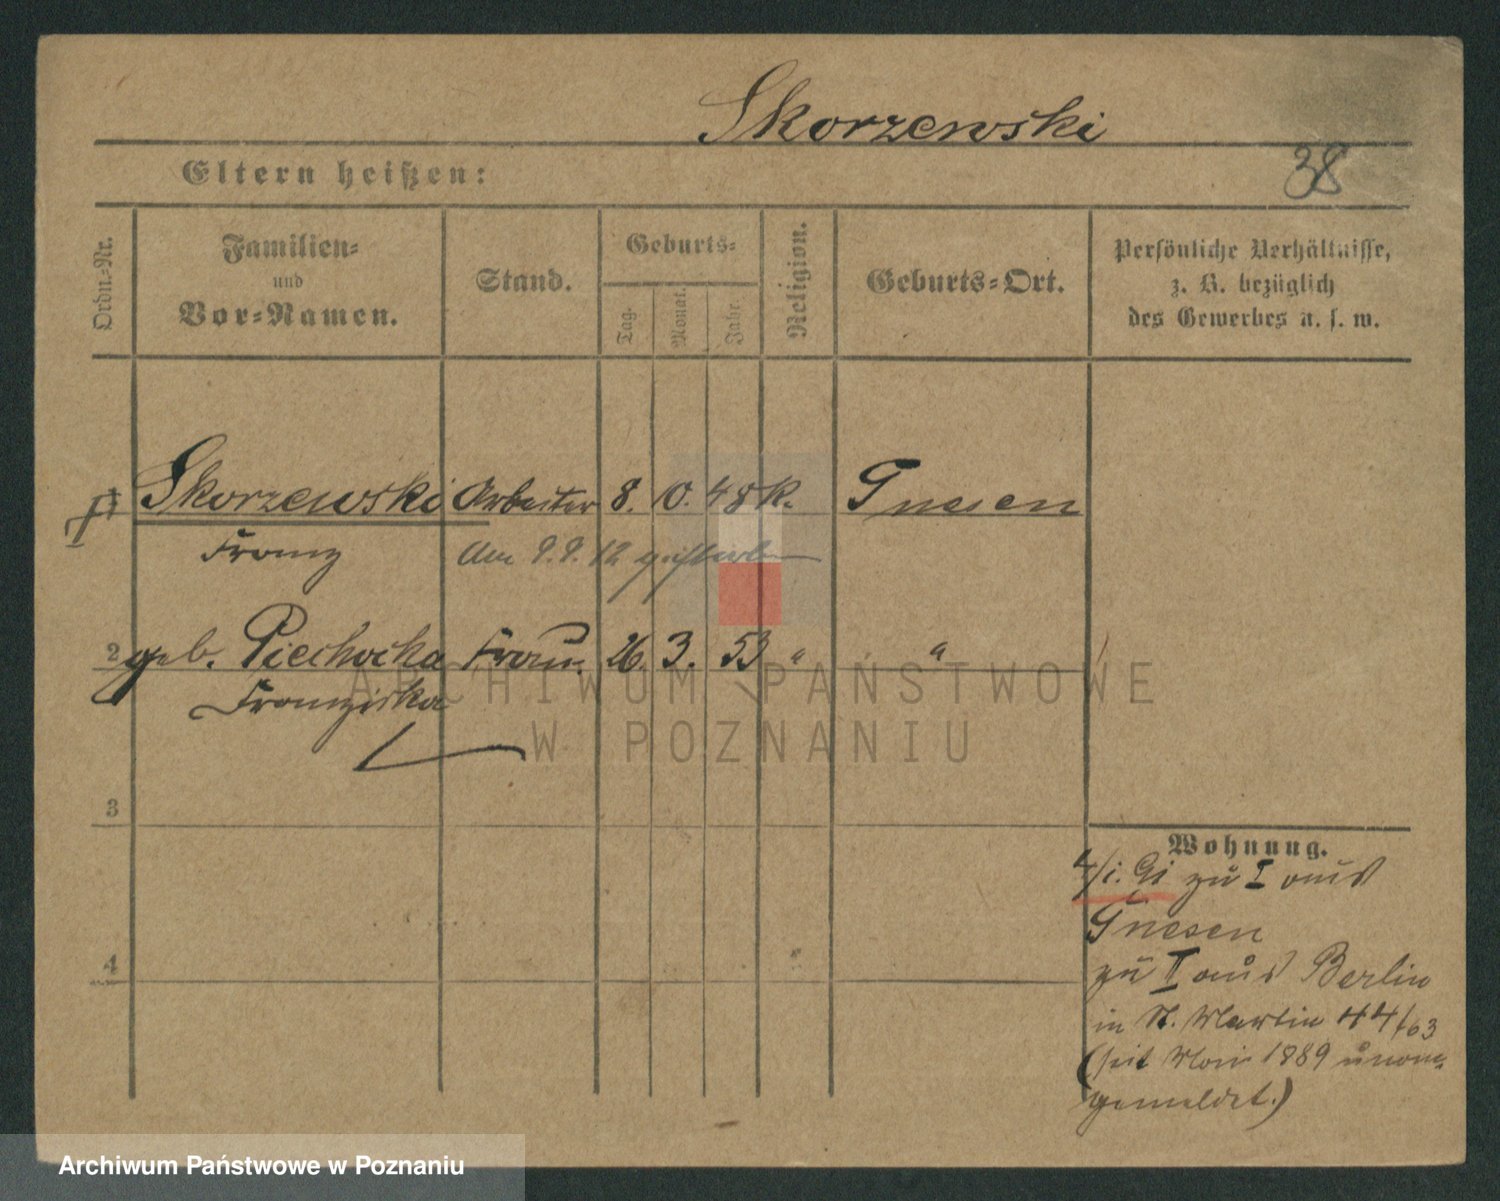 Skorzewski
38
Eltern heißen:
Ordn.-Nr.
Familien-
und
Vor-Namen.
Stand.
Geburts-
Tag.
Monat.
Jahr.
Religion.
Geburts-Ort.
Persönliche Verhältnisse,
z. B. bezüglich
des Gewerbes u. s. w.
1 Skorzewski Arbeiter 8. 10. 48 K. Gnesen
Franz Am 9.9.12 gestorben
2 geb. Piechocka Frau 26. 3. 53 " "
Franziska
3
4
Wohnung.
zu I aus
Gnesen
zu II aus Berlin
in St. Martin 44/63
(seit 1889 unan-
gemeldet.)
ARCHIWUM PAŃSTWOWE
W POZNANIU
Archiwum Państwowe w Poznaniu